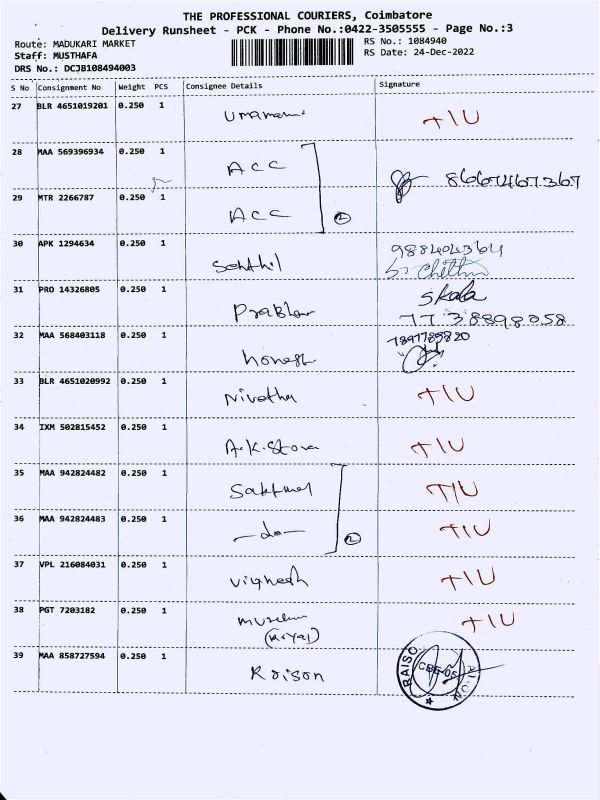 THE PROFESSIONAL COURIERS, Coimbatore
Delivery Runsheet - PCK - Phone No.:0422-3505555 - Page No.:3
Route: MADUKARI MARKET
RS No.: 1084940
Staff: MUSTHAFA
RS Date: 24-Dec-2022
DRS No.: DCJB108494003
S No Consignment No Weight PCS Consignee Details Signature
27 BLR 4651019201 0.250 1 T/U
28 MAA 569396934 0.250 1 ACC
8667467367
29 MTR 2266787 0.250 1 ACC 2
30 APK 1294634 0.250 1 Senthil
988404364
31 PRO 14326805 0.250 1 Prabhu Skala
7738898058
32 MAA 568403118 0.250 1 honest 7897789820
33 BLR 4651020992 0.250 1 Nivetha T/U
34 IXM 502815452 0.250 1 A.K.Store T/U
35 MAA 942824482 0.250 1 Sakthivel T/U
36 MAA 942824483 0.250 1 -do- 2 T/U
37 VPL 216084031 0.250 1 Vighesh T/U
38 PGT 7203182 0.250 1 T/U
39 MAA 858727594 0.250 1 Raison
RAISO CBE-05